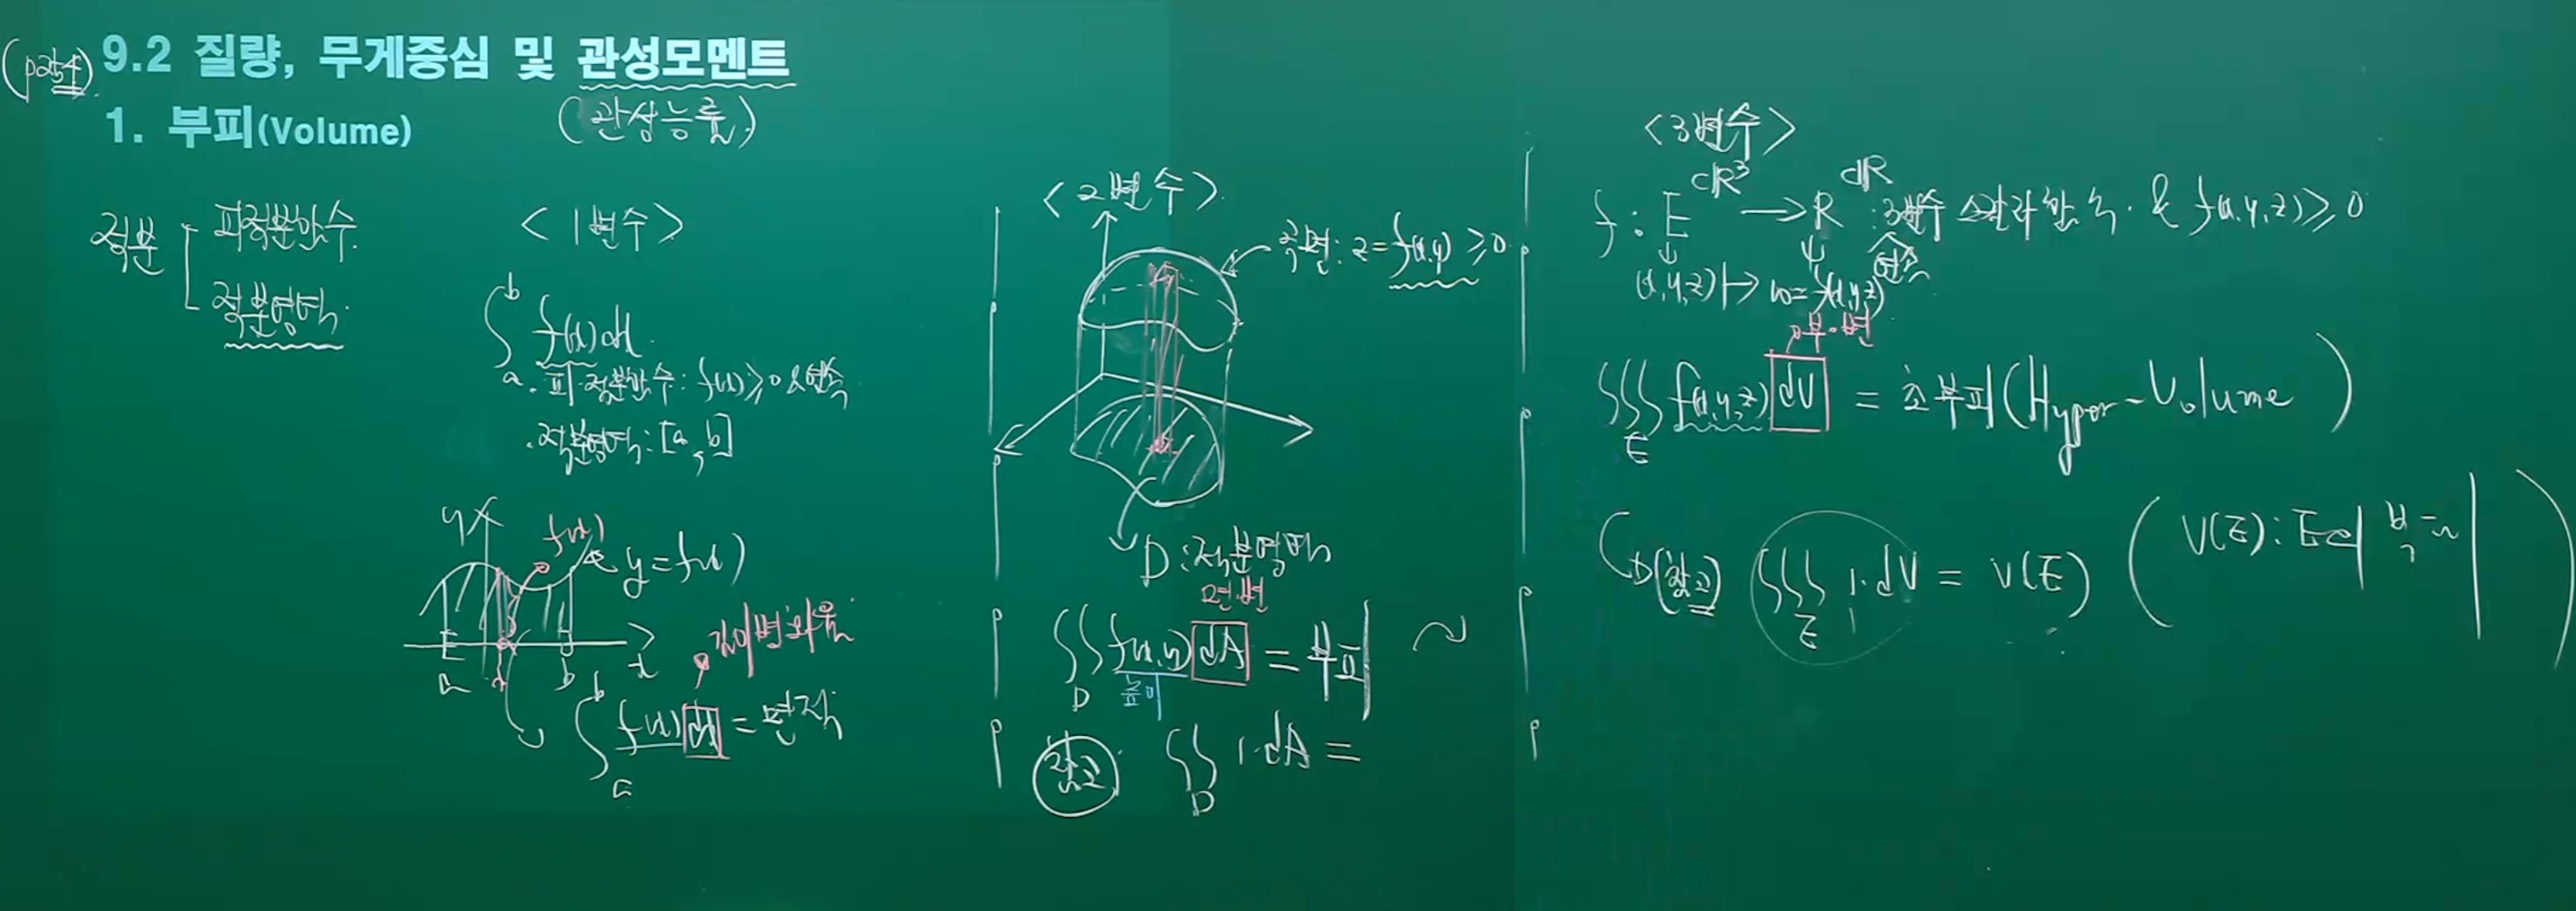 (p254)
9.2 질량, 무게중심 및 관성모멘트
1. 부피(Volume)
(관성능률)
적분
피적분함수
적분영역
<1변수>
∫_a^b f(x)dx
· 피적분함수: f(x)≥0 & 연속
· 적분영역: [a, b]
y
f(x)
y=f(x)
a
x
b
x
길이변화율
∫_a^b f(x)dx = 면적
<2변수>
곡면: z=f(x,y)≥0
D: 적분영역
면변
∬_D f(x,y)dA = 부피
높이
참고
∬_D 1·dA =
<3변수>
f: E ⊂ℝ³ → R ⊂ℝ : 3변수 스칼라함수 & f(x,y,z)≥0
연속
(x,y,z) ↦ w=f(x,y,z)
부·변
∭_E f(x,y,z)dV = 초부피(Hyper-Volume)
(참고) ∭_E 1·dV = V(E) (V(E): E의 부피)